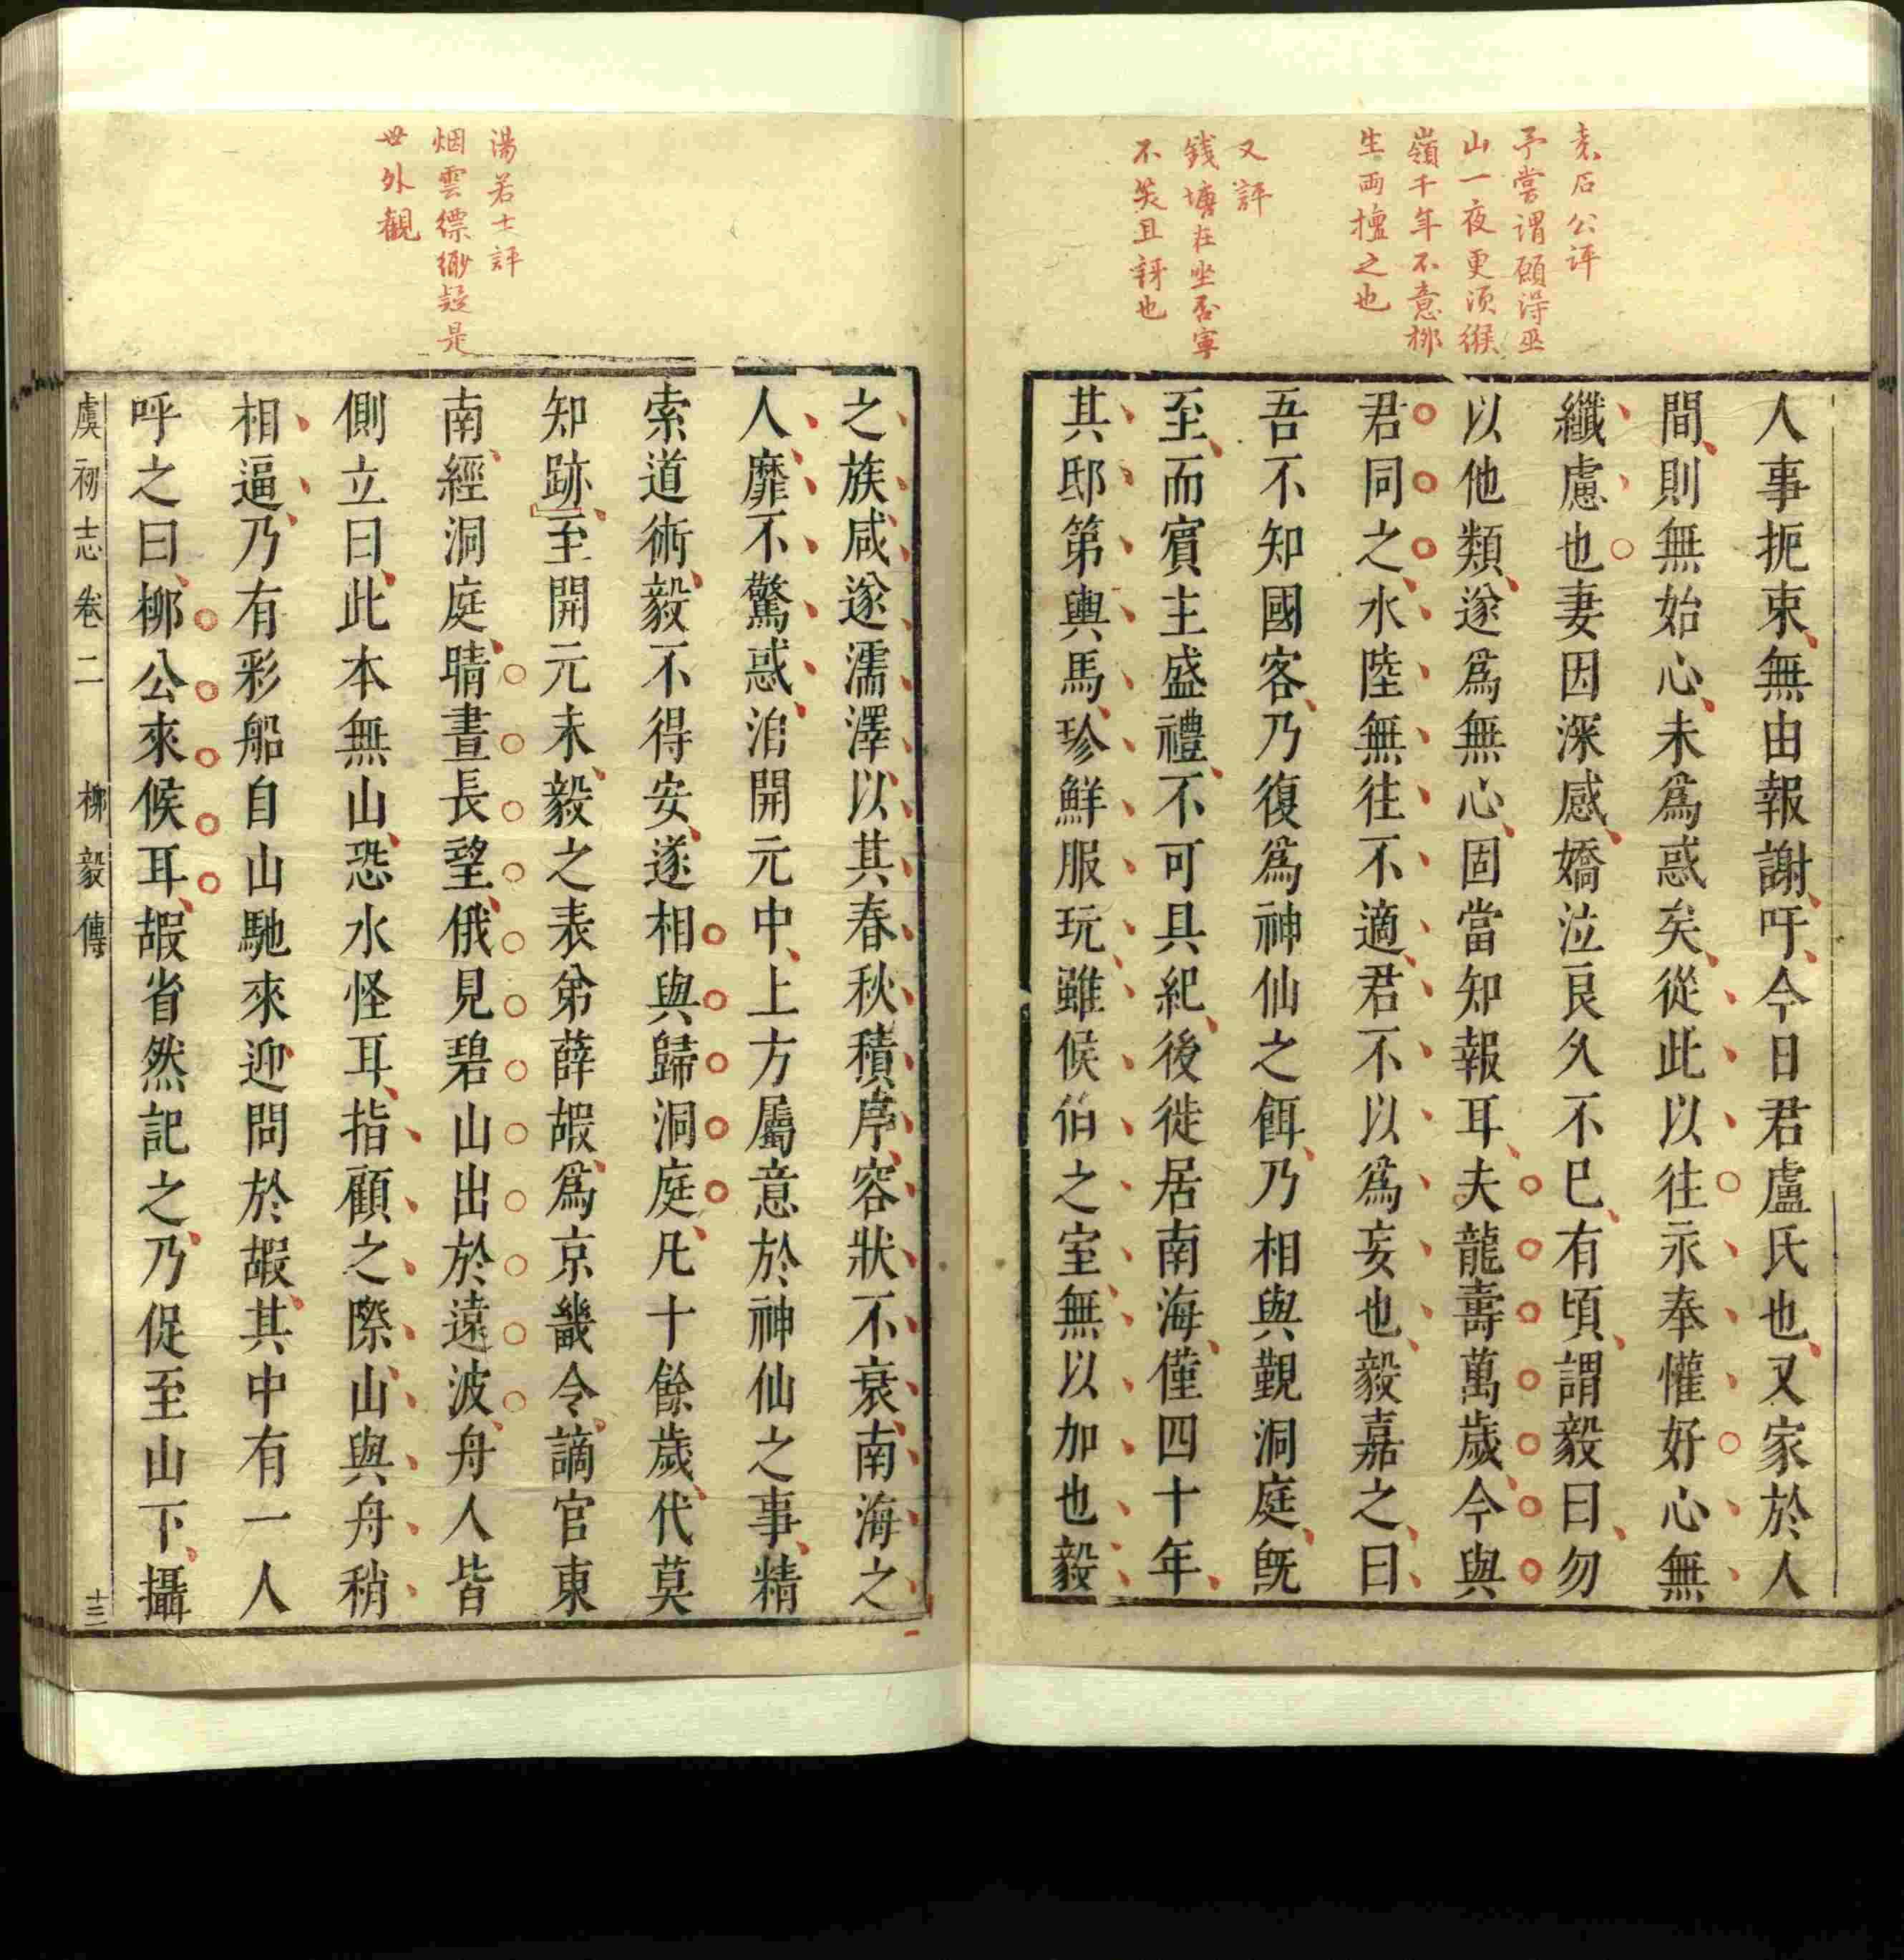 袁石公評
予嘗謂願得巫
山一夜更須緱
嶺千年不意柳
生両擅之也
又評
錢塘在坐否寧
不笑且訝也
人事扼束無由報謝吁今日君盧氏也又家於人
間則無始心未爲惑矣從此以往永奉懽好心無
纖慮也妻因深感嬌泣良久不已有頃謂毅曰勿
以他類遂爲無心固當知報耳夫龍壽萬歲今與
君同之水陸無往不適君不以爲妄也毅嘉之曰
吾不知國客乃復爲神仙之餌乃相與覲洞庭旣
至而賓主盛禮不可具紀後徙居南海僅四十年
其邸第輿馬珍鮮服玩雖候伯之室無以加也毅
湯若士評
烟雲縹緲疑是
世外観
之族咸遂濡澤以其春秋積序容狀不衰南海之
人靡不驚惑洎開元中上方屬意於神仙之事精
索道術毅不得安遂相與歸洞庭凡十餘歲代莫
知跡至開元末毅之表弟薛嘏爲京畿令謫官東
南經洞庭晴晝長望俄見碧山出於遠波舟人皆
側立曰此本無山恐水怪耳指顧之際山與舟稍
相逼乃有彩船自山馳來迎問於嘏其中有一人
呼之曰柳公來候耳嘏省然記之乃促至山下攝
虞初志卷二 柳毅傳 十三